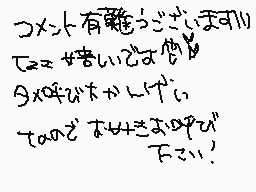 コメント有難うございます!!!
てててヤ嬉しいです
タメ呼び大かんげい
なので お好きお呼び
下さい!